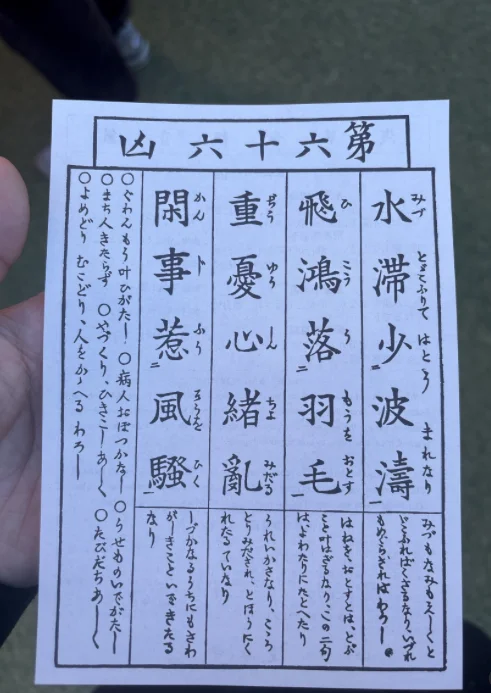 第六十六凶
水滞少波濤
みづ とゞこふりて はとう まれなり
飛鴻落羽毛
ひ こう う もうを おとす
重憂心緒亂
ぢう ゆう しん ちよ みだる
閑事惹風騒
かん ふう さうを ひく
みづもなみも
くさるなり、いづれ
もめぐらざればわろし
はねをおとすとは、とぶ
こと叶はざるなり、この二句
は、よわたりにたとへたり
うれいかさなり、こゝろ
とりみだされ、とほうにく
れたるていなり
しづかなるうちにもさわ
がしきこといできたる
なり
○ぐわんもう叶ひがたし ○病人おぼつかなし ○うせものいでがたし
○まち人きたらず ○やづくり、ひきこしあしく ○たびだちあしく
○よめどり むこどり、人をかゝへる わろし